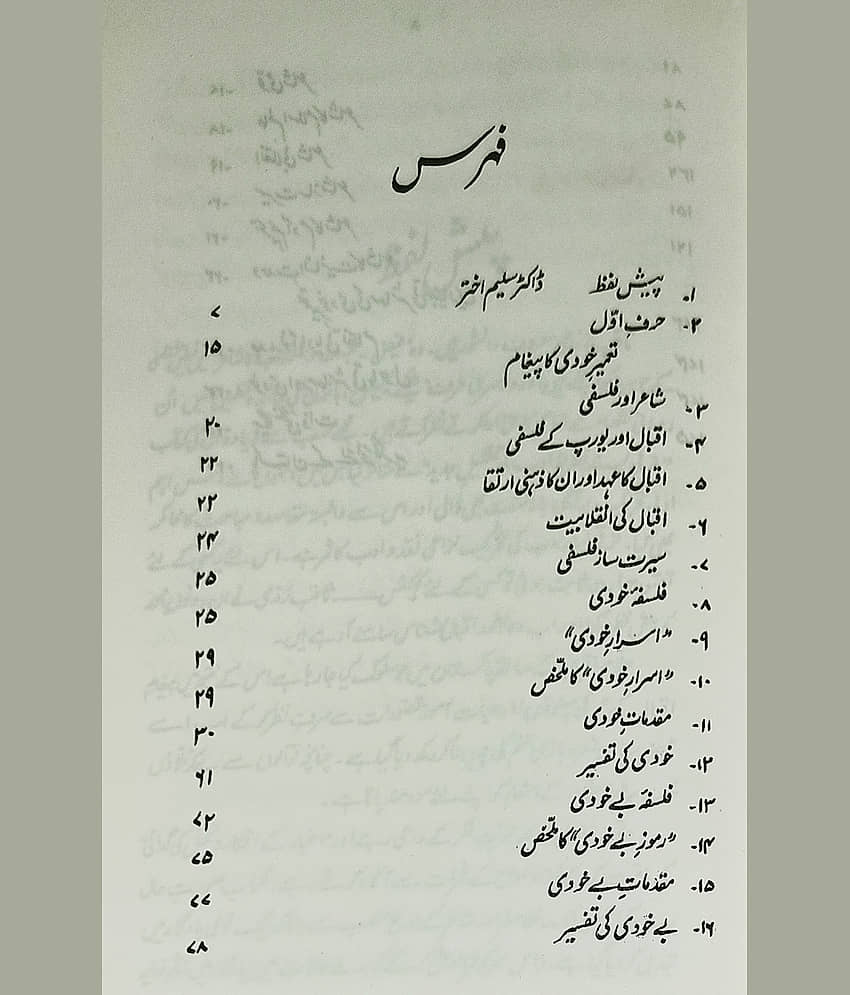 فہرس
۱۔ پیش لفظ ڈاکٹر سلیم اختر ۷
۲۔ حرفِ اوّل ۱۵
تعمیرِ خودی کا پیغام
۳۔ شاعر اور فلسفی ۲۰
۴۔ اقبال اور یورپ کے فلسفی ۲۲
۵۔ اقبال کا عہد اور ان کا ذہنی ارتقا ۲۲
۶۔ اقبال کی انقلابیت ۲۴
۷۔ سیرت ساز فلسفی ۲۵
۸۔ فلسفۂ خودی ۲۵
۹۔ ”اسرارِ خودی“ ۲۹
۱۰۔ ”اسرارِ خودی“ کا ملخّص ۲۹
۱۱۔ مقدماتِ خودی ۳۰
۱۲۔ خودی کی تفسیر ۶۱
۱۳۔ فلسفۂ بے خودی ۷۲
۱۴۔ ”رموزِ بے خودی“ کا ملخّص ۷۵
۱۵۔ مقدماتِ بے خودی ۷۷
۱۶۔ بے خودی کی تفسیر ۷۸